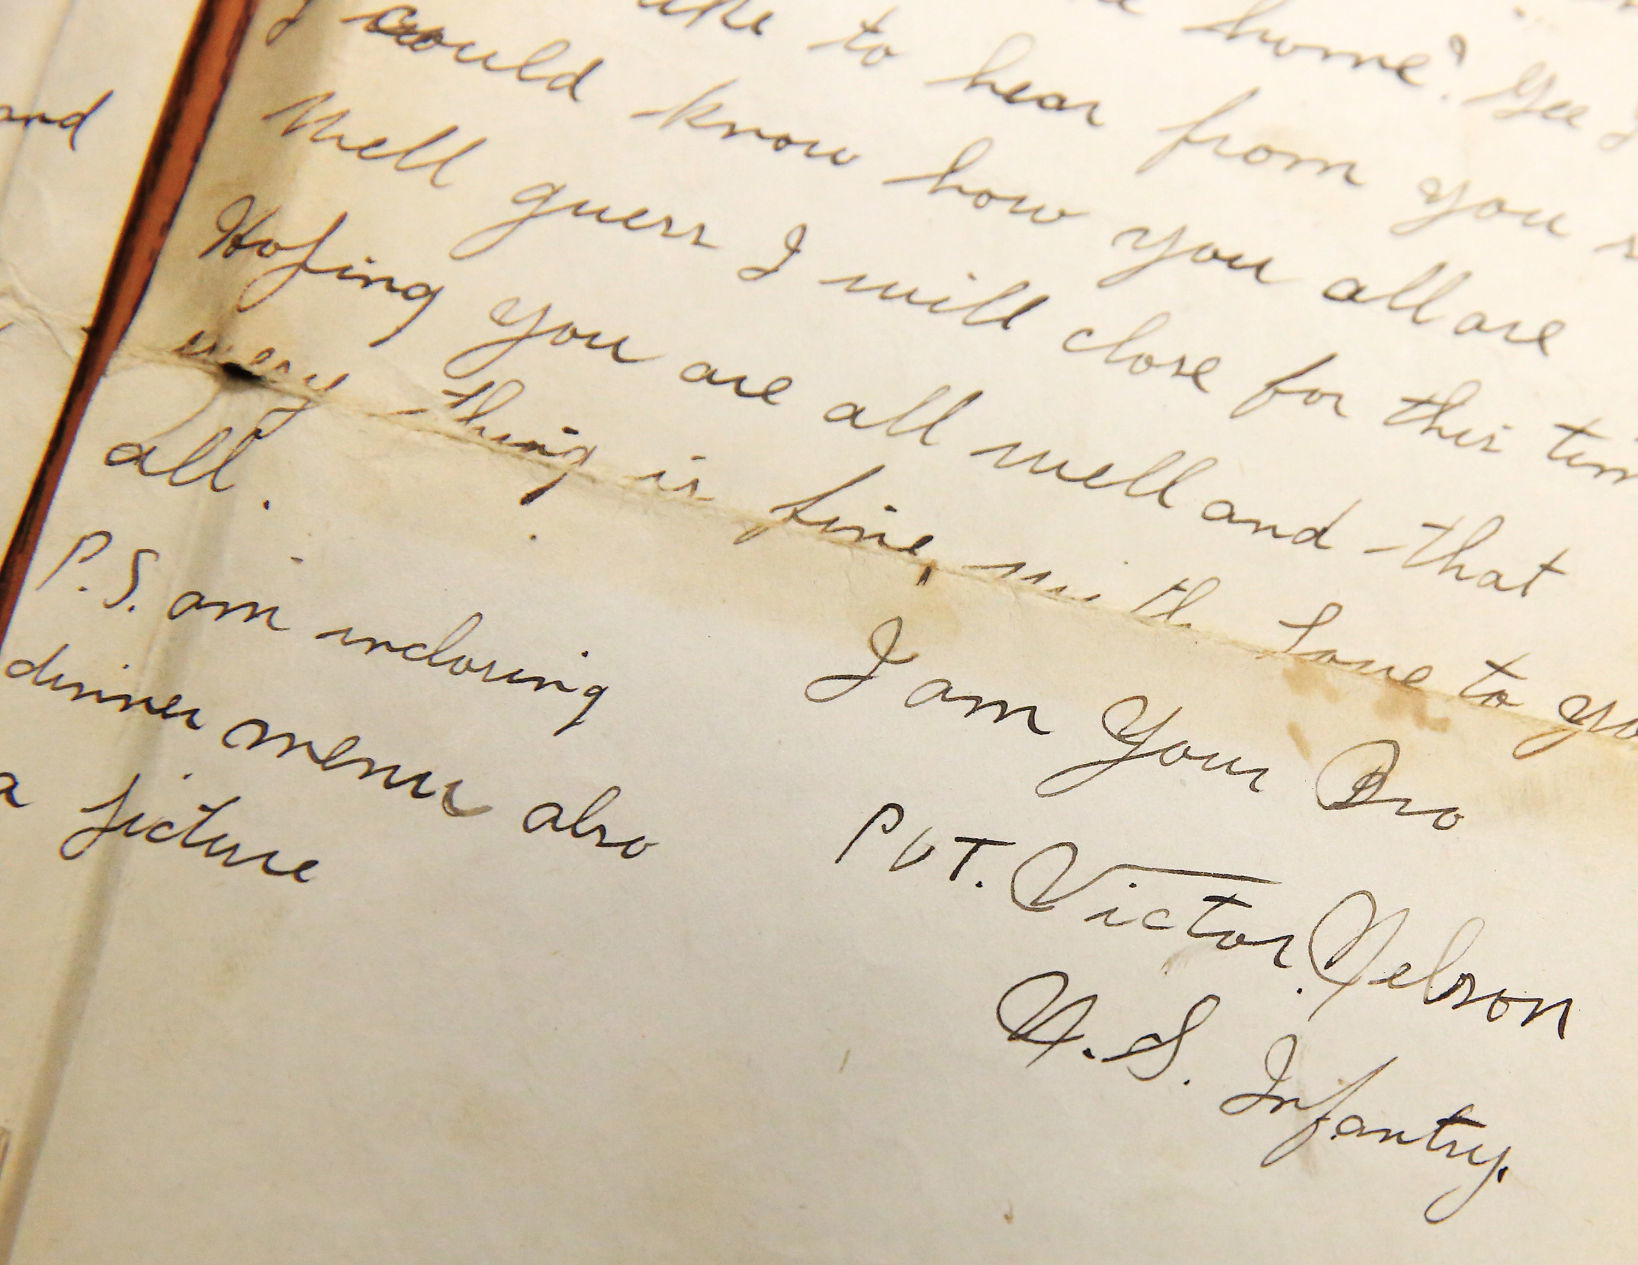 home? Gee I
like to hear from you
I could know how you all are
Well guess I will close for this
Hoping you are all well and that
every thing is fine, with Love to
all.
I am Your Bro
Pvt. Victor. Nelson
U.S. Infantry.
P.S. am inclosing
dinner menu also
a picture
and